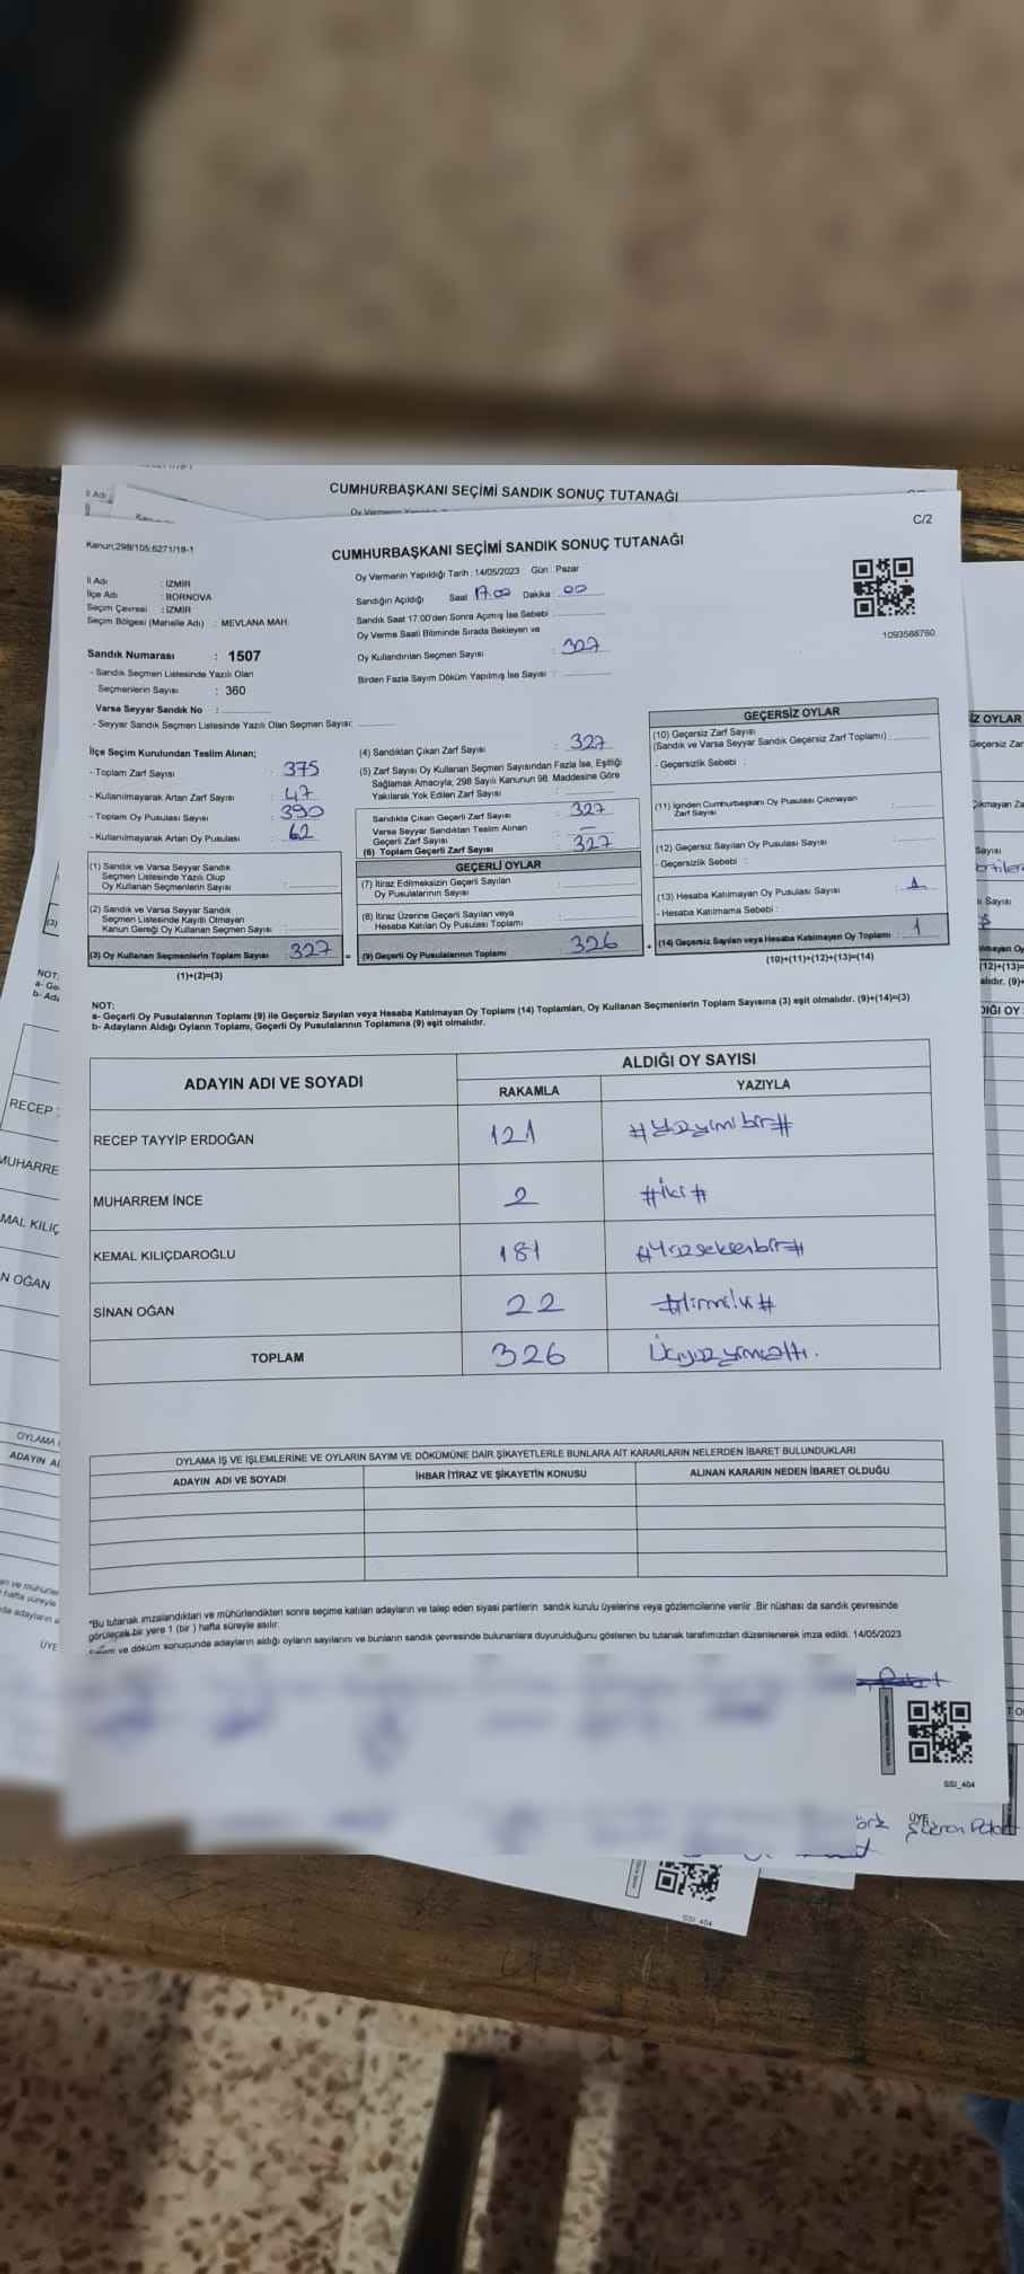 CUMHURBAŞKANI SEÇİMİ SANDIK SONUÇ TUTANAĞI
İl Adı
C/2
Kanun;298/105;6271/18-1
CUMHURBAŞKANI SEÇİMİ SANDIK SONUÇ TUTANAĞI
İl Adı : İZMİR
İlçe Adı : BORNOVA
Seçim Çevresi : İZMİR
Seçim Bölgesi (Mahalle Adı) : MEVLANA MAH.
Oy Vermenin Yapıldığı Tarih : 14/05/2023 Gün : Pazar
Sandığın Açıldığı Saat 17.00 Dakika 00
Sandık Saat 17:00'den Sonra Açılmış İse Sebebi
Oy Verme Saati Bitiminde Sırada Bekleyen ve
Oy Kullandırılan Seçmen Sayısı : 327
Birden Fazla Sayım Döküm Yapılmış İse Sayısı :
1093588760
Sandık Numarası : 1507
- Sandık Seçmen Listesinde Yazılı Olan
Seçmenlerin Sayısı : 360
Varsa Seyyar Sandık No :
- Seyyar Sandık Seçmen Listesinde Yazılı Olan Seçmen Sayısı:
İlçe Seçim Kurulundan Teslim Alınan;
- Toplam Zarf Sayısı : 375
- Kullanılmayarak Artan Zarf Sayısı : 47
- Toplam Oy Pusulası Sayısı : 390
- Kullanılmayarak Artan Oy Pusulası : 62
(1) Sandık ve Varsa Seyyar Sandık
Seçmen Listesinde Yazılı Olup
Oy Kullanan Seçmenlerin Sayısı :
(2) Sandık ve Varsa Seyyar Sandık
Seçmen Listesinde Kayıtlı Olmayan
Kanun Gereği Oy Kullanan Seçmen Sayısı :
(3) Oy Kullanan Seçmenlerin Toplam Sayısı 327
(1)+(2)=(3)
(4) Sandıktan Çıkan Zarf Sayısı : 327
(5) Zarf Sayısı Oy Kullanan Seçmen Sayısından Fazla İse, Eşitliği
Sağlamak Amacıyla; 298 Sayılı Kanunun 98. Maddesine Göre
Yakılarak Yok Edilen Zarf Sayısı :
Sandıkta Çıkan Geçerli Zarf Sayısı : 327
Varsa Seyyar Sandıktan Teslim Alınan
Geçerli Zarf Sayısı : —
(6) Toplam Geçerli Zarf Sayısı : 327
GEÇERLİ OYLAR
(7) İtiraz Edilmeksizin Geçerli Sayılan
Oy Pusulalarının Sayısı
(8) İtiraz Üzerine Geçerli Sayılan veya
Hesaba Katılan Oy Pusulası Toplamı
(9) Geçerli Oy Pusulalarının Toplamı 326
GEÇERSİZ OYLAR
(10) Geçersiz Zarf Sayısı
(Sandık ve Varsa Seyyar Sandık Geçersiz Zarf Toplamı) :
- Geçersizlik Sebebi :
(11) İçinden Cumhurbaşkanı Oy Pusulası Çıkmayan
Zarf Sayısı :
(12) Geçersiz Sayılan Oy Pusulası Sayısı :
- Geçersizlik Sebebi :
(13) Hesaba Katılmayan Oy Pusulası Sayısı : 1
- Hesaba Katılmama Sebebi :
(14) Geçersiz Sayılan veya Hesaba Katılmayan Oy Toplamı : 1
(10)+(11)+(12)+(13)=(14)
NOT:
a- Geçerli Oy Pusulalarının Toplamı (9) ile Geçersiz Sayılan veya Hesaba Katılmayan Oy Toplamı (14) Toplamları, Oy Kullanan Seçmenlerin Toplam Sayısına (3) eşit olmalıdır. (9)+(14)=(3)
b- Adayların Aldığı Oyların Toplamı, Geçerli Oy Pusulalarının Toplamına (9) eşit olmalıdır.
ADAYIN ADI VE SOYADI
ALDIĞI OY SAYISI
RAKAMLA YAZIYLA
RECEP TAYYİP ERDOĞAN 121 #Yüzyirmibir#
MUHARREM İNCE 2 #iki#
KEMAL KILIÇDAROĞLU 181 #Yüzseksenbir#
SİNAN OĞAN 22
TOPLAM 326 Üçyüzyirmialtı.
OYLAMA İŞ VE İŞLEMLERİNE VE OYLARIN SAYIM VE DÖKÜMÜNE DAİR ŞİKAYETLERLE BUNLARA AİT KARARLARIN NELERDEN İBARET BULUNDUKLARI
ADAYIN ADI VE SOYADI İHBAR İTİRAZ VE ŞİKAYETİN KONUSU ALINAN KARARIN NEDEN İBARET OLDUĞU
"Bu tutanak imzalandıktan ve mühürlendikten sonra seçime katılan adayların ve talep eden siyasi partilerin sandık kurulu üyelerine veya gözlemcilerine verilir. Bir nüshası da sandık çevresinde
görülecek bir yere 1 (bir) hafta süreyle asılır.
ve döküm sonucunda adayların aldığı oyların sayılarını ve bunların sandık çevresinde bulunanlara duyurulduğunu gösteren bu tutanak tarafımızdan düzenlenerek imza edildi. 14/05/2023
SSI_404
ÜYE
SSI_404